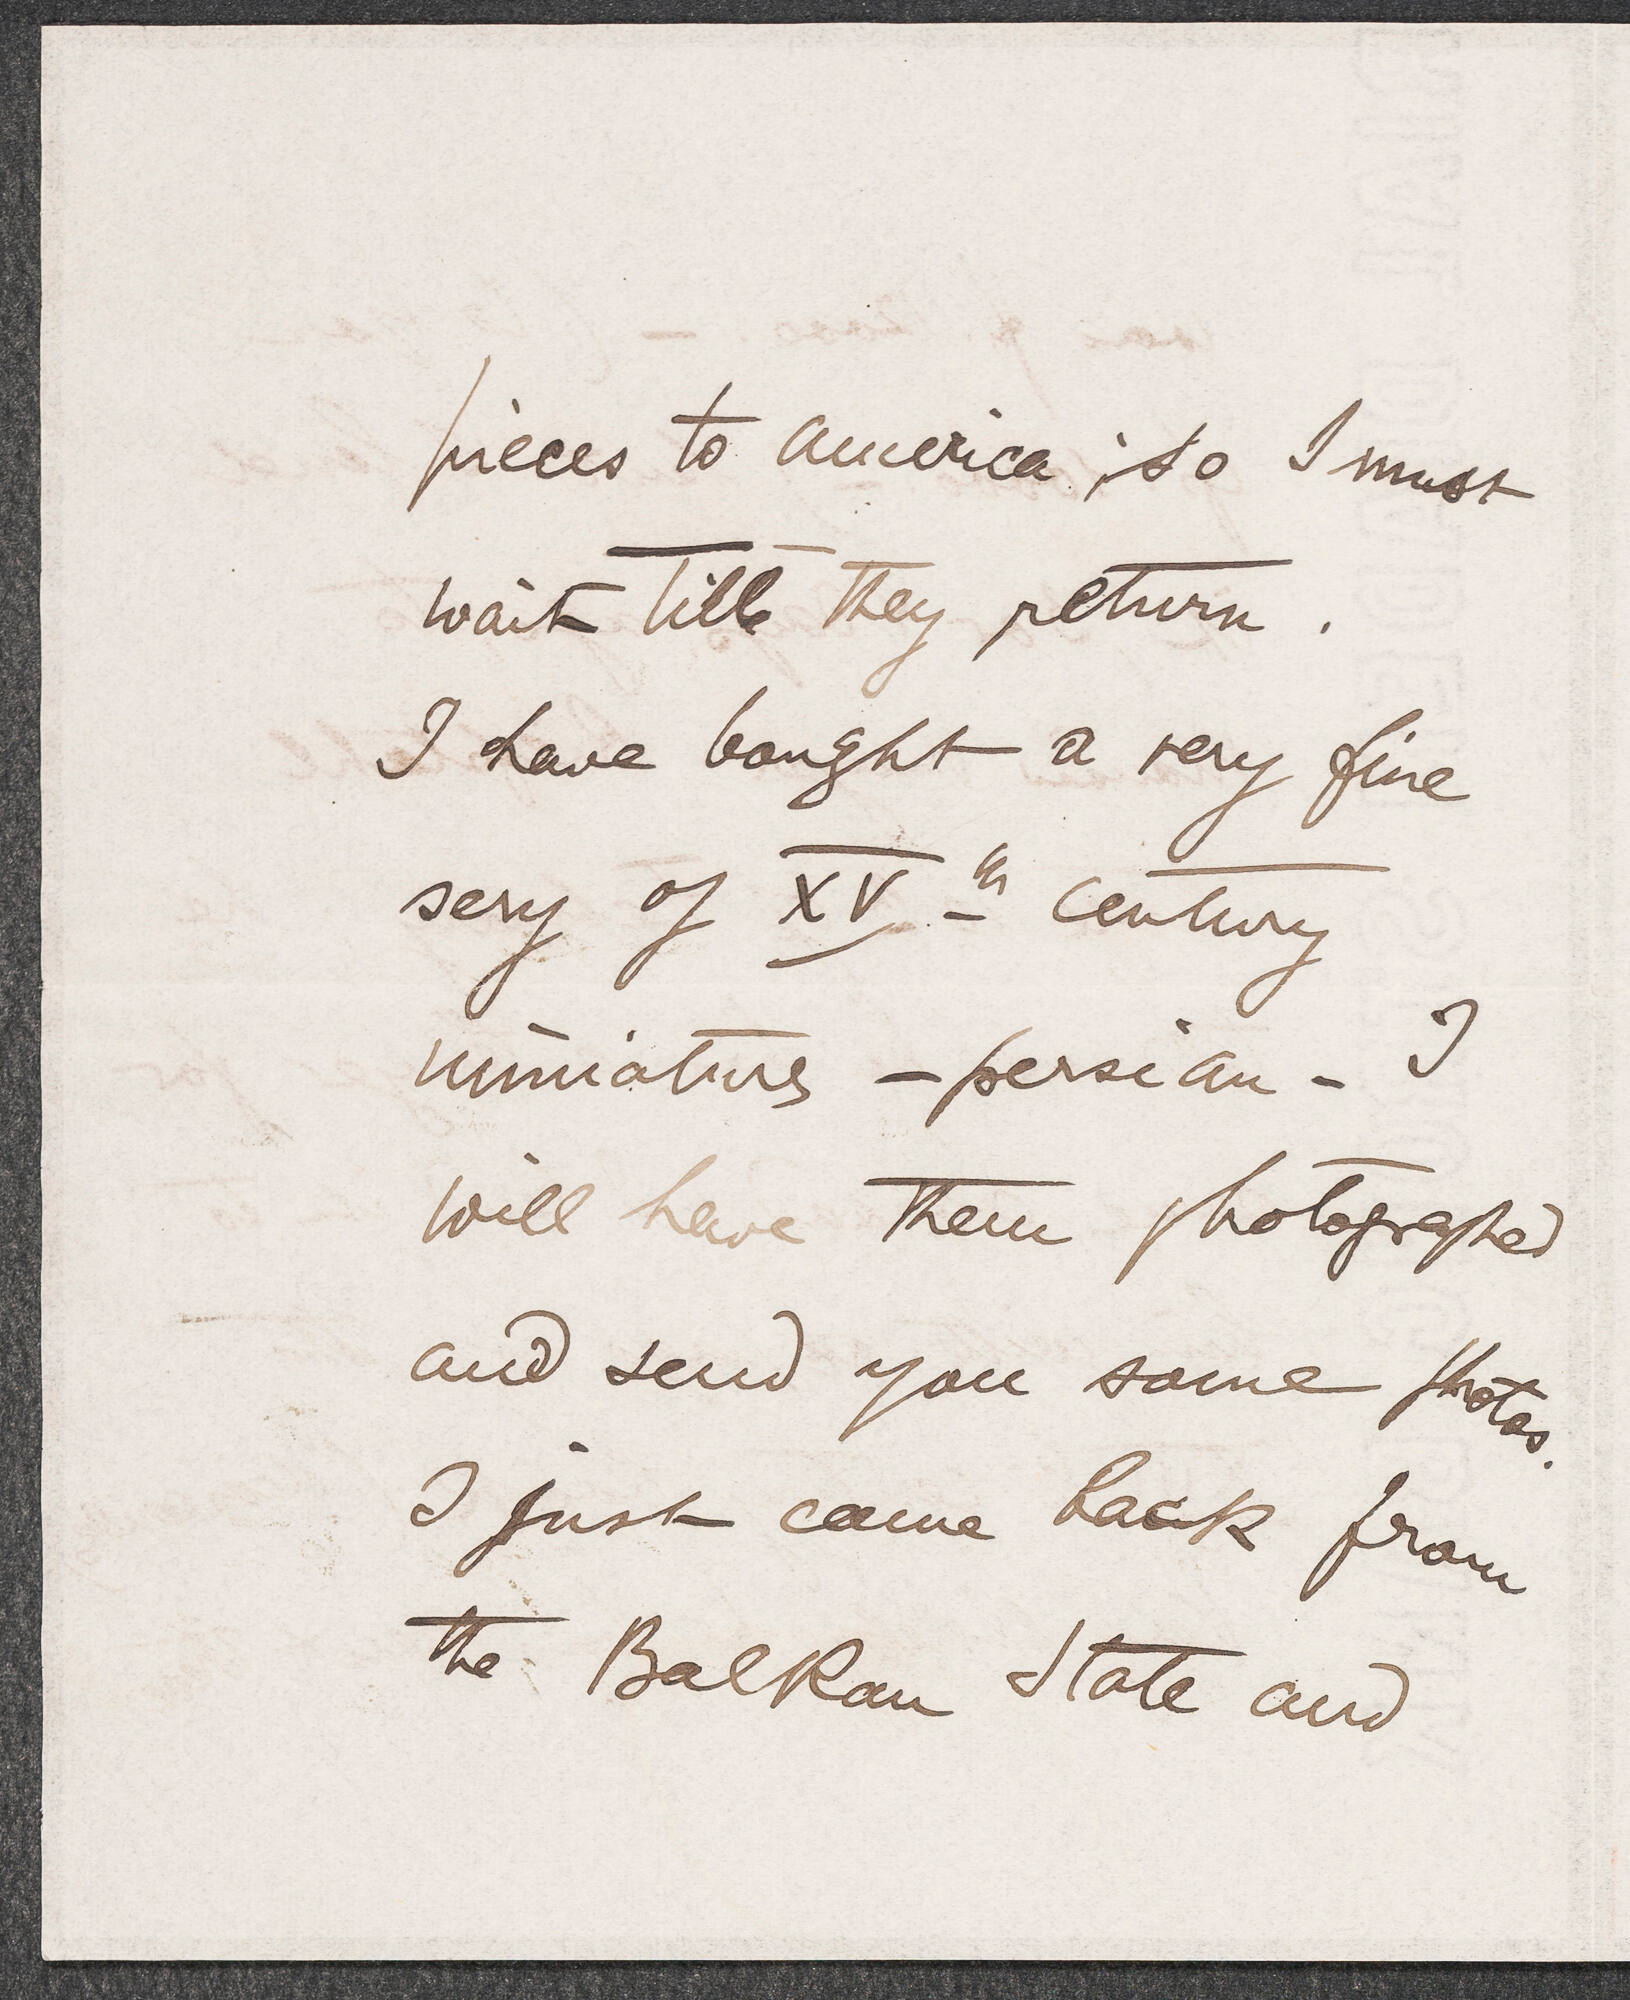 pieces to america ; so I must
wait till they return .
I have bought a very fine
sery of XV th century
miniatures - persian - I
will have them photographed
and send you some photos.
I just came back from
the Balkan State and